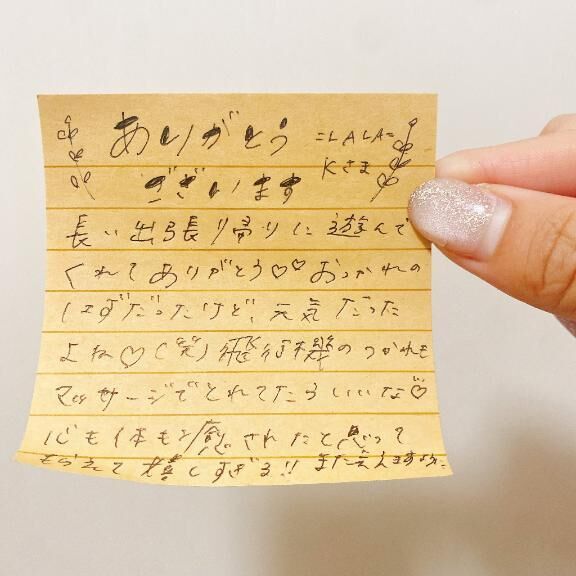 ありがとう
=LALA=
Kさま
ございます
長い出張り帰りに遊んで
くれてありがとう♡♡おつかれの
はずだったけど、元気だった
よね♡(笑)飛行機のつかれも
マッサージでとれてたらいいな♡
心も体も癒されたと思って
もらえて嬉しすぎる!!また会えますように